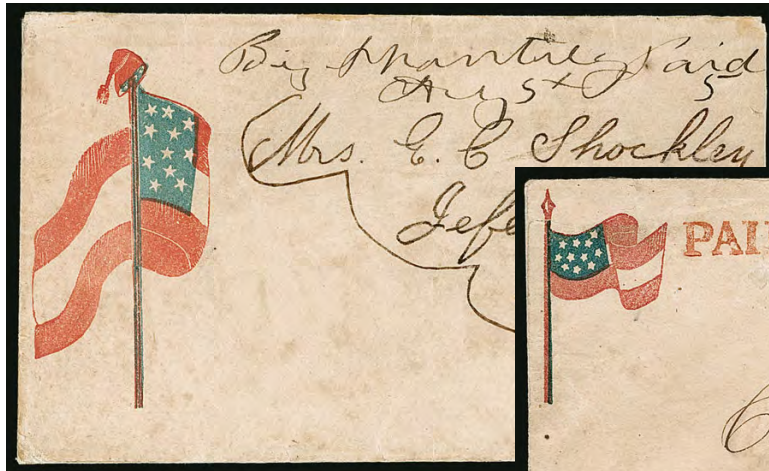 Big Shanty Ga Paid
Aug 5th 5
Mrs. E. C. Shockley
Jefe
PAI
C